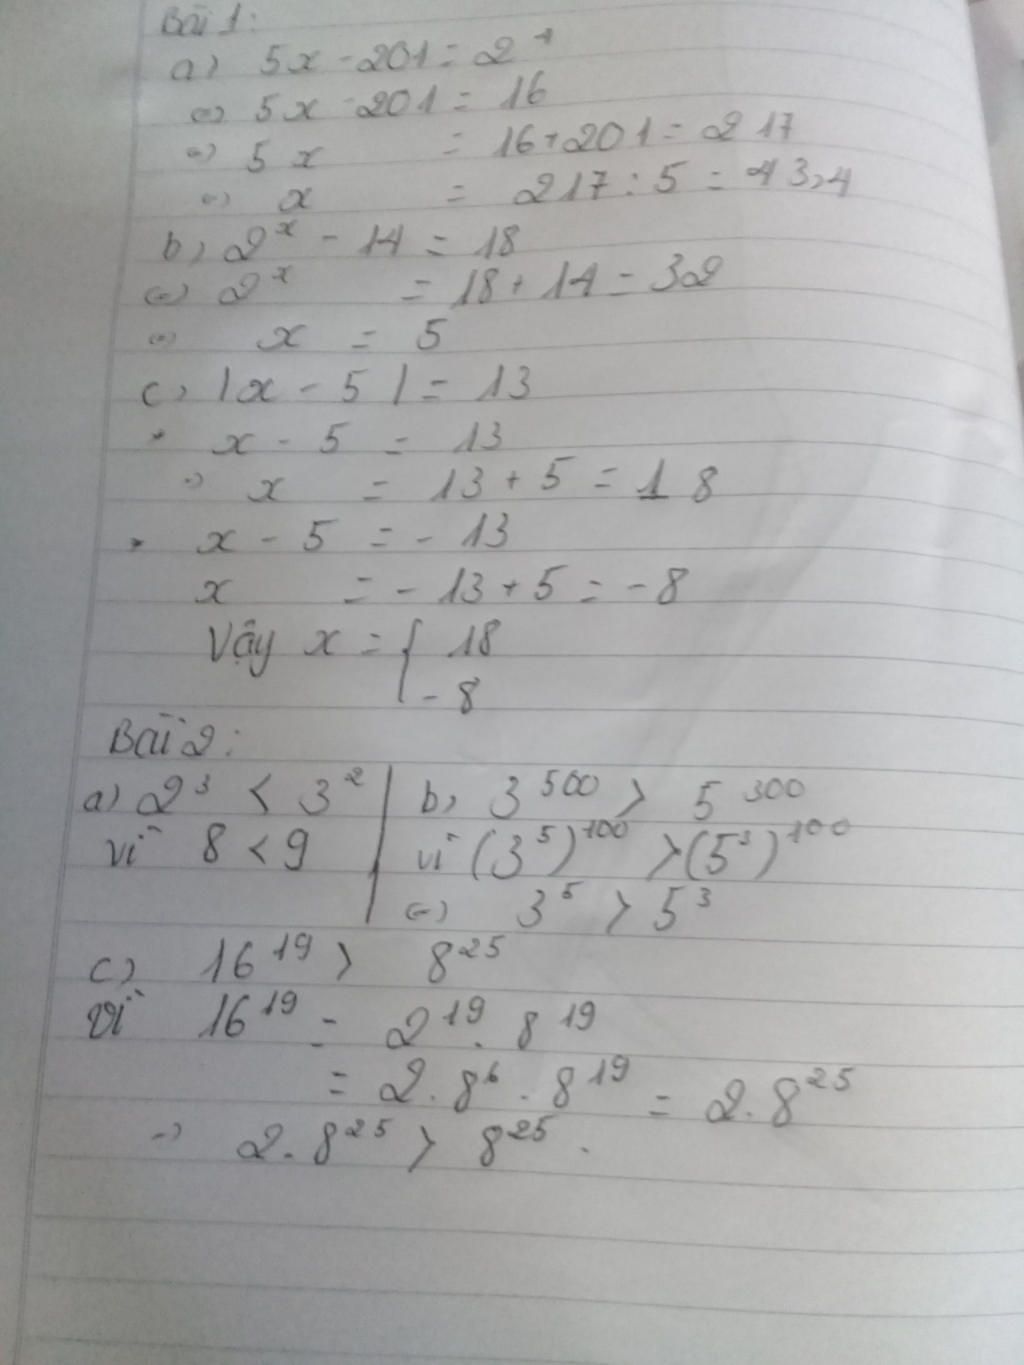 Bài 1:
a) 5x - 201 = 2⁴
<=> 5x - 201 = 16
=> 5x = 16 + 201 = 217
=> x = 217 : 5 = 43,4
b) 2ˣ - 14 = 18
<=> 2ˣ = 18 + 14 = 32
=> x = 5
c) |x - 5| = 13
* x - 5 = 13
=> x = 13 + 5 = 18
* x - 5 = - 13
x = - 13 + 5 = - 8
Vậy x = { 18
- 8
Bài 2:
a) 2³ < 3²
vì 8 < 9
b) 3⁵⁰⁰ > 5³⁰⁰
vì (3⁵)¹⁰⁰ > (5³)¹⁰⁰
<=> 3⁵ > 5³
c) 16¹⁹ > 8²⁵
vì 16¹⁹ = 2¹⁹ . 8¹⁹
= 2 . 8⁶ . 8¹⁹ = 2 . 8²⁵
=> 2 . 8²⁵ > 8²⁵ .